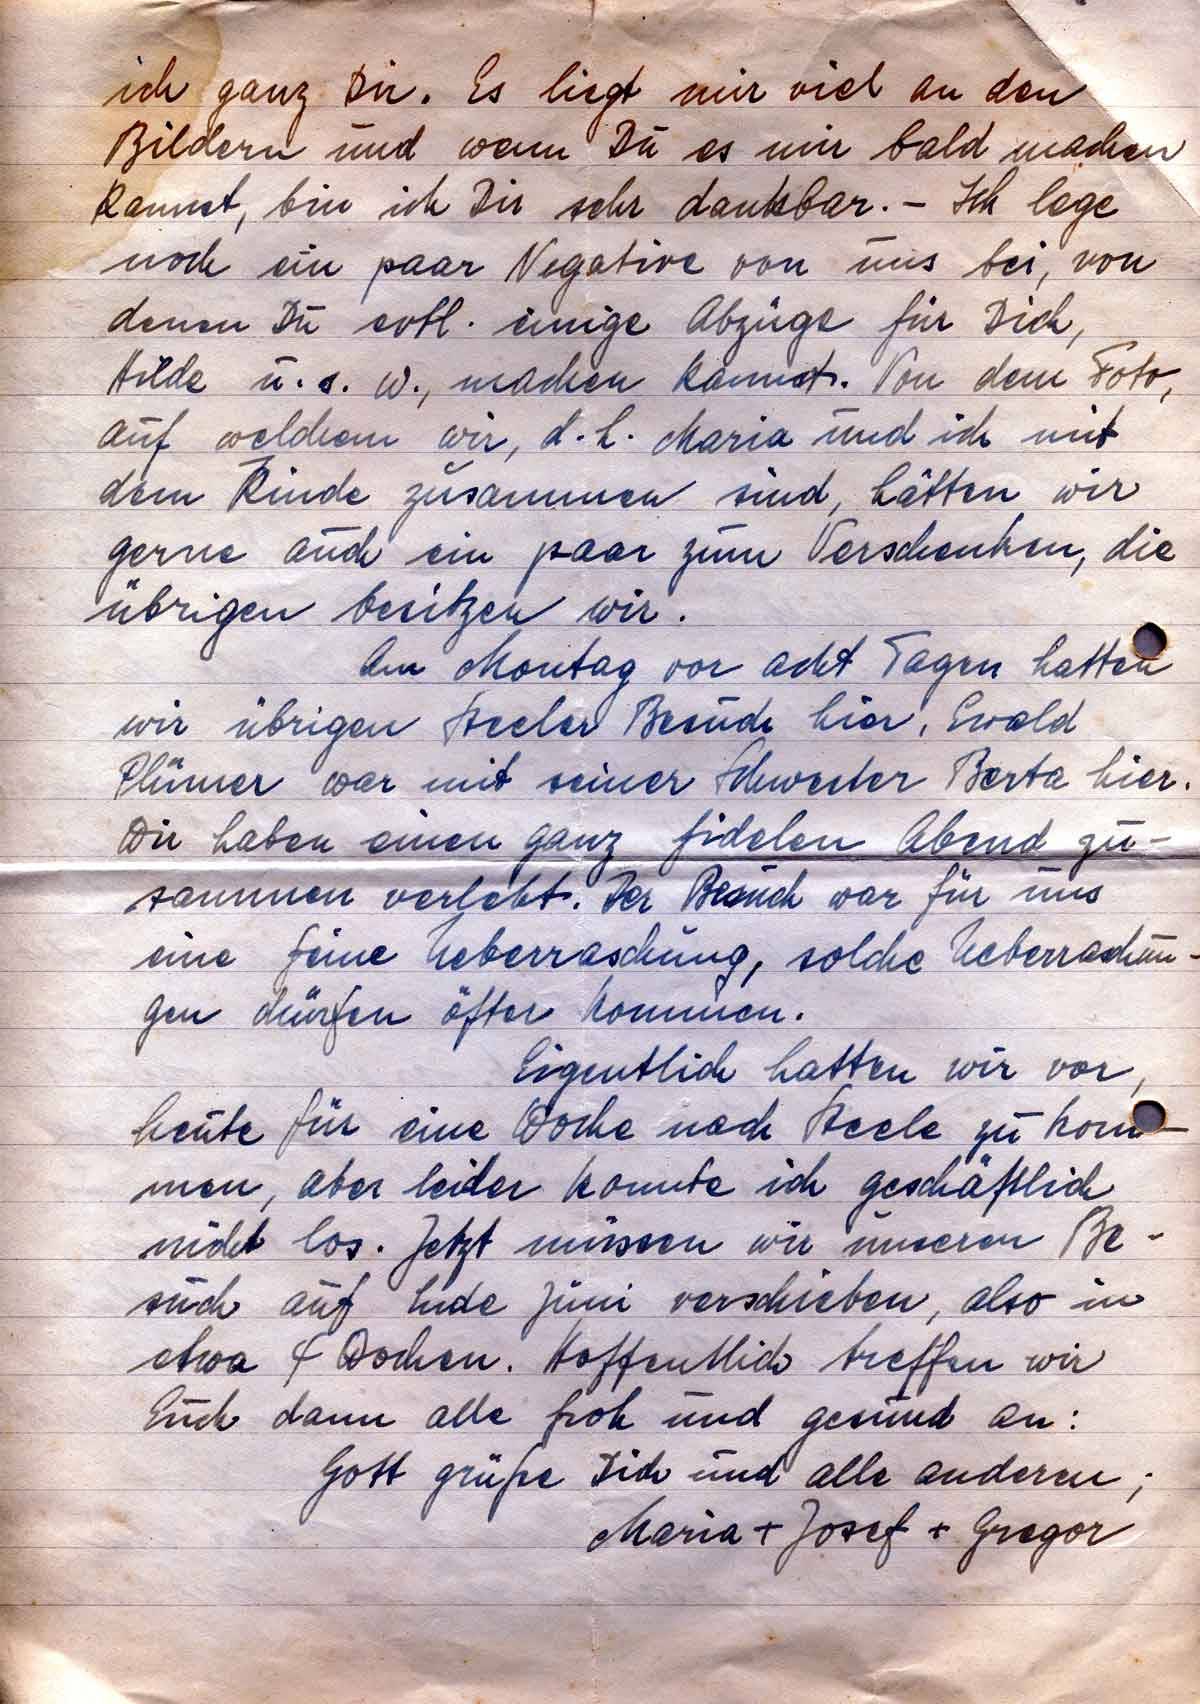 ich ganz Dir. Es liegt mir viel an den
Bildern und wenn Du es mir bald machen
kannst, bin ich Dir sehr dankbar. – Ich lege
noch ein paar Negative von uns bei, von
denen Du evtl. einige Abzüge für Dich,
Hilde u. s. w., machen kannst. Von dem Foto,
auf welchem wir, d. h. Maria und ich mit
dem Kinde zusammen sind, hätten wir
gerne auch ein paar zum Verschenken, die
übrigen besitzen wir.
Am Montag vor acht Tagen hatten
wir übrigen Steeler Besuch hier, Ewald
Plümer war mit seiner Schwester Berta hier.
Wir haben einen ganz fidelen Abend zu-
sammen verlebt. Der Besuch war für uns
eine feine Ueberraschung, solche Ueberraschun-
gen dürfen öfter kommen.
Eigentlich hatten wir vor,
heute für eine Woche nach Steele zu kom-
men, aber leider konnte ich geschäftlich
nicht los. Jetzt müssen wir unseren Be-
such auf Ende Juni verschieben, also in
etwa 4 Wochen. Hoffentlich treffen wir
Euch dann alle froh und gesund an:
Gott grüße Dich und alle anderen;
Maria + Josef + Gregor